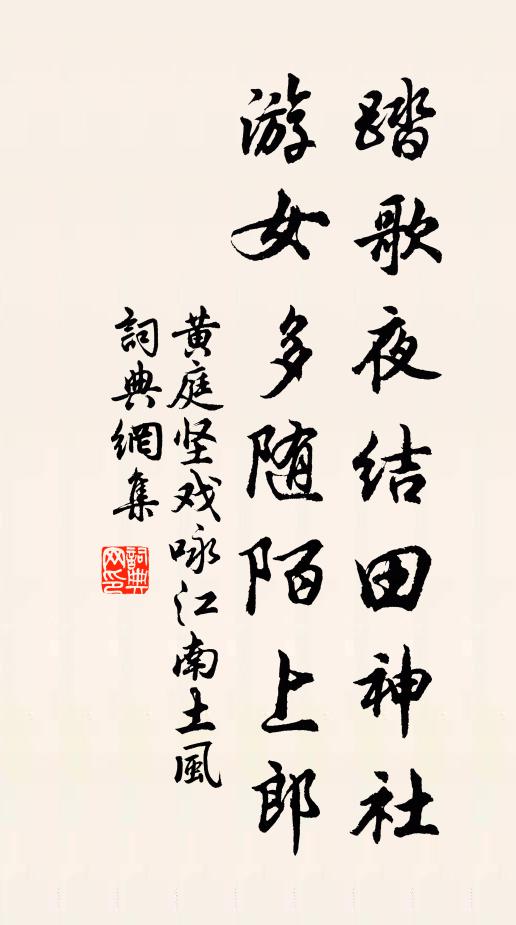 踏歌夜结田神社
游女多随陌上郎
黄庭坚戏咏江南土風
詞典網集
詞典網印